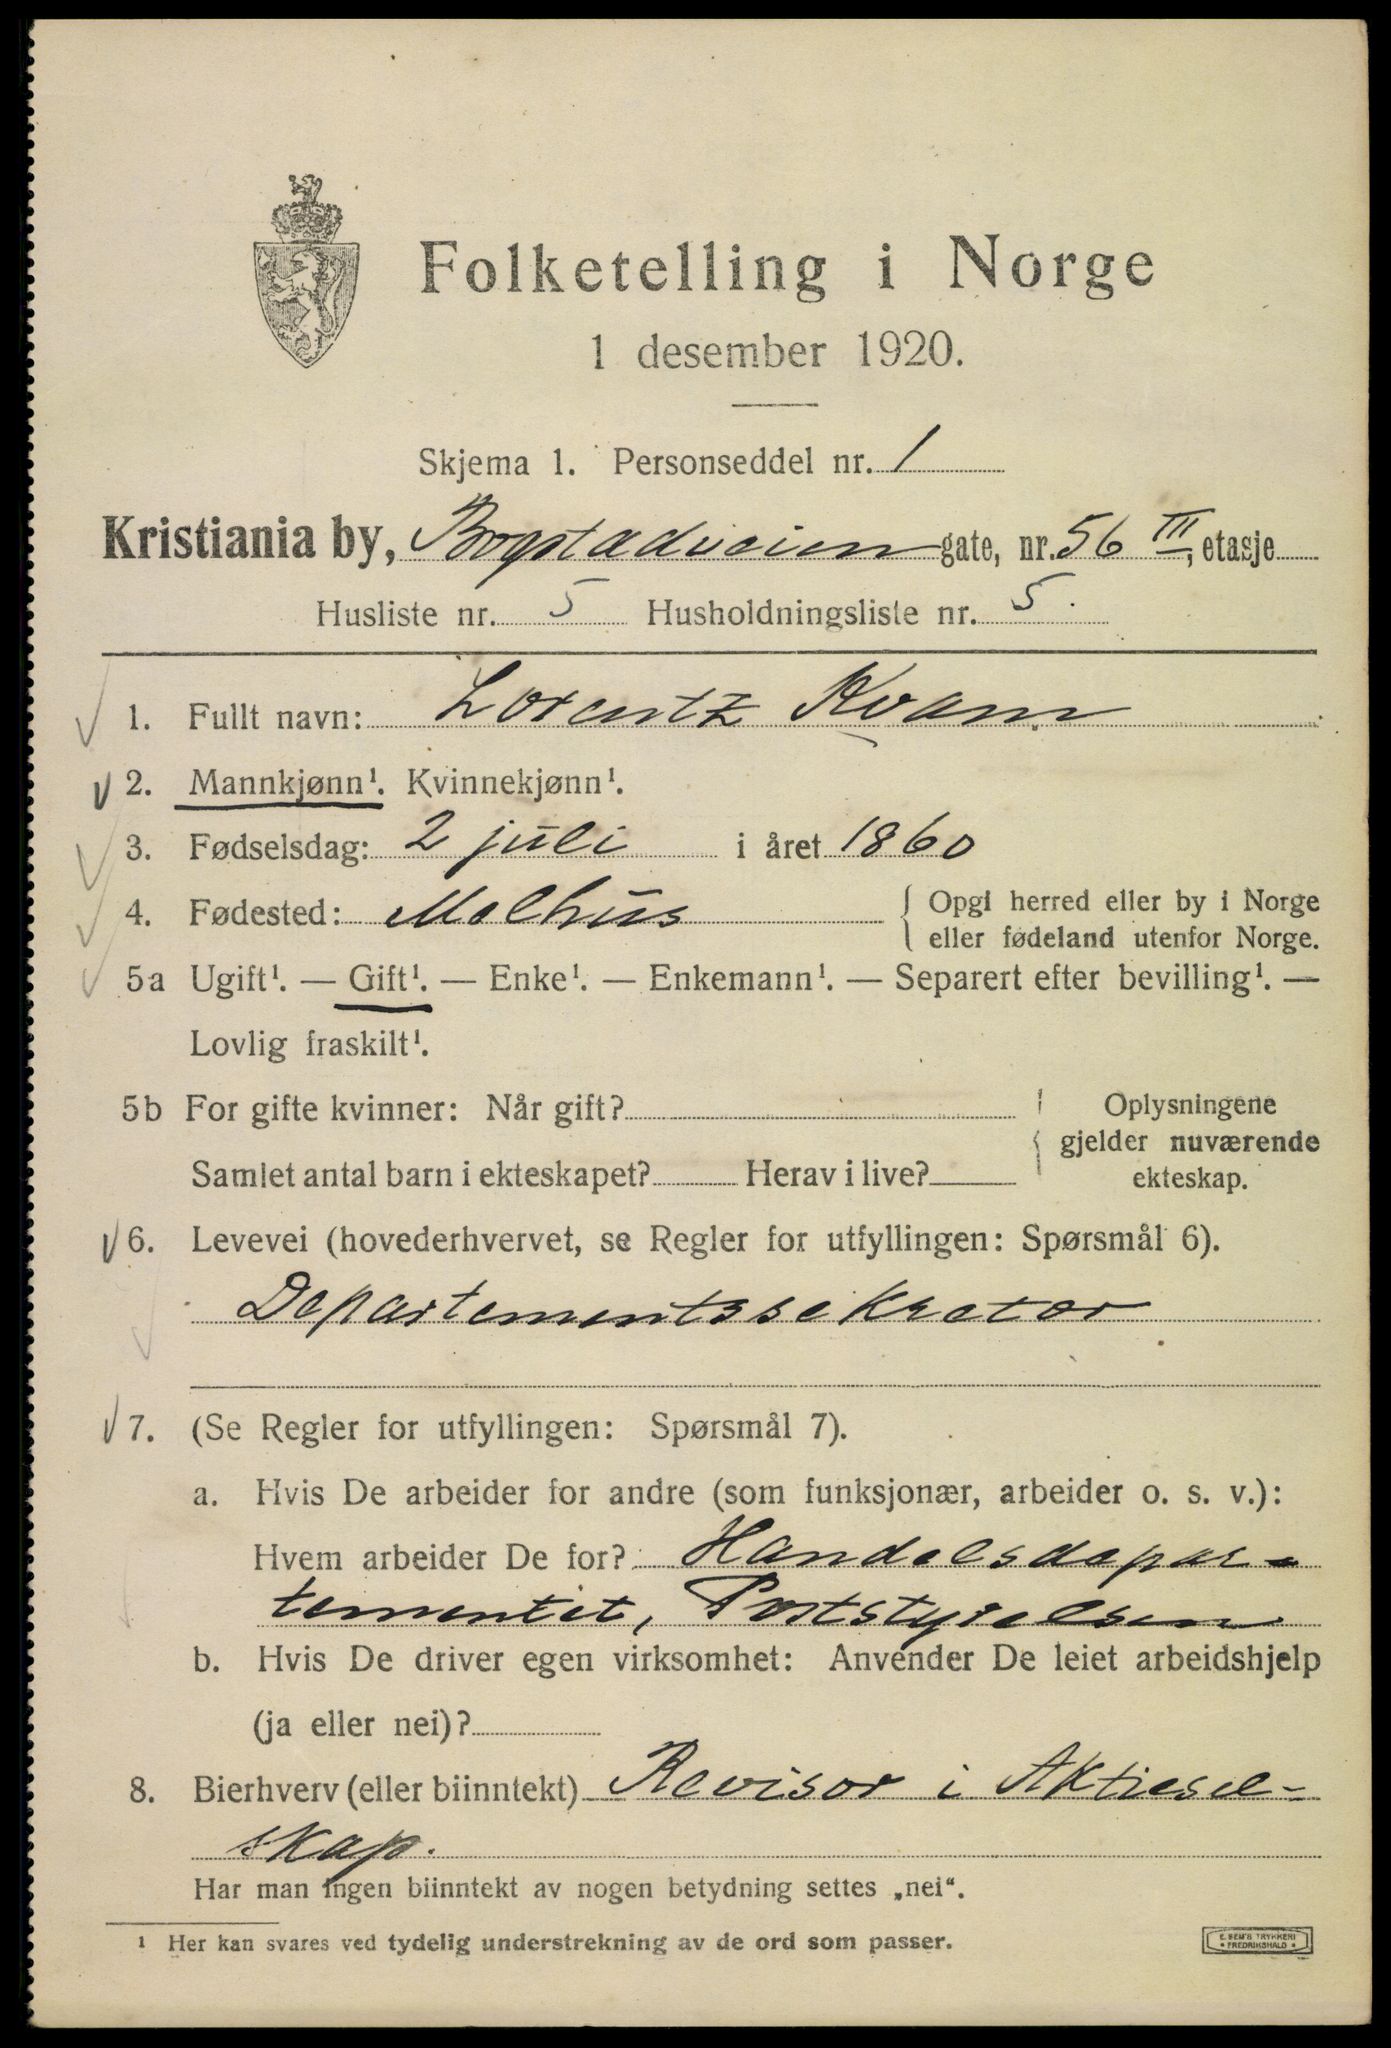 Folketelling i Norge
1 desember 1920.
Skjema 1. Personseddel nr. 1
Kristiania by, Bogstadveien gate, nr. 56 III, etasje
Husliste nr. 5 Husholdningsliste nr. 5.
1. Fullt navn: Lorentz Kvam
2. Mannkjønn¹. Kvinnekjønn¹.
3. Fødselsdag: 2 juli i året 1860
4. Fødested: Melhus
Opgi herred eller by i Norge
eller fødeland utenfor Norge.
5a Ugift¹. — Gift¹. — Enke¹. — Enkemann¹. — Separert efter bevilling¹. —
Lovlig fraskilt¹.
5b For gifte kvinner: Når gift?
Samlet antal barn i ekteskapet? Herav i live?
Oplysningene
gjelder nuværende
ekteskap.
6. Levevei (hovederhvervet, se Regler for utfyllingen: Spørsmål 6).
Departementssekretær
7. (Se Regler for utfyllingen: Spørsmål 7).
a. Hvis De arbeider for andre (som funksjonær, arbeider o. s. v.):
Hvem arbeider De for? Handelsdepar-
tementet, Poststyrelsen
b. Hvis De driver egen virksomhet: Anvender De leiet arbeidshjelp
(ja eller nei)?
8. Bierhverv (eller biinntekt) Revisor i Aktiesel-
skap.
Har man ingen biinntekt av nogen betydning settes „nei“.
¹ Her kan svares ved tydelig understrekning av de ord som passer.
E. SEM'S TRYKKERI
FREDRIKSHALD